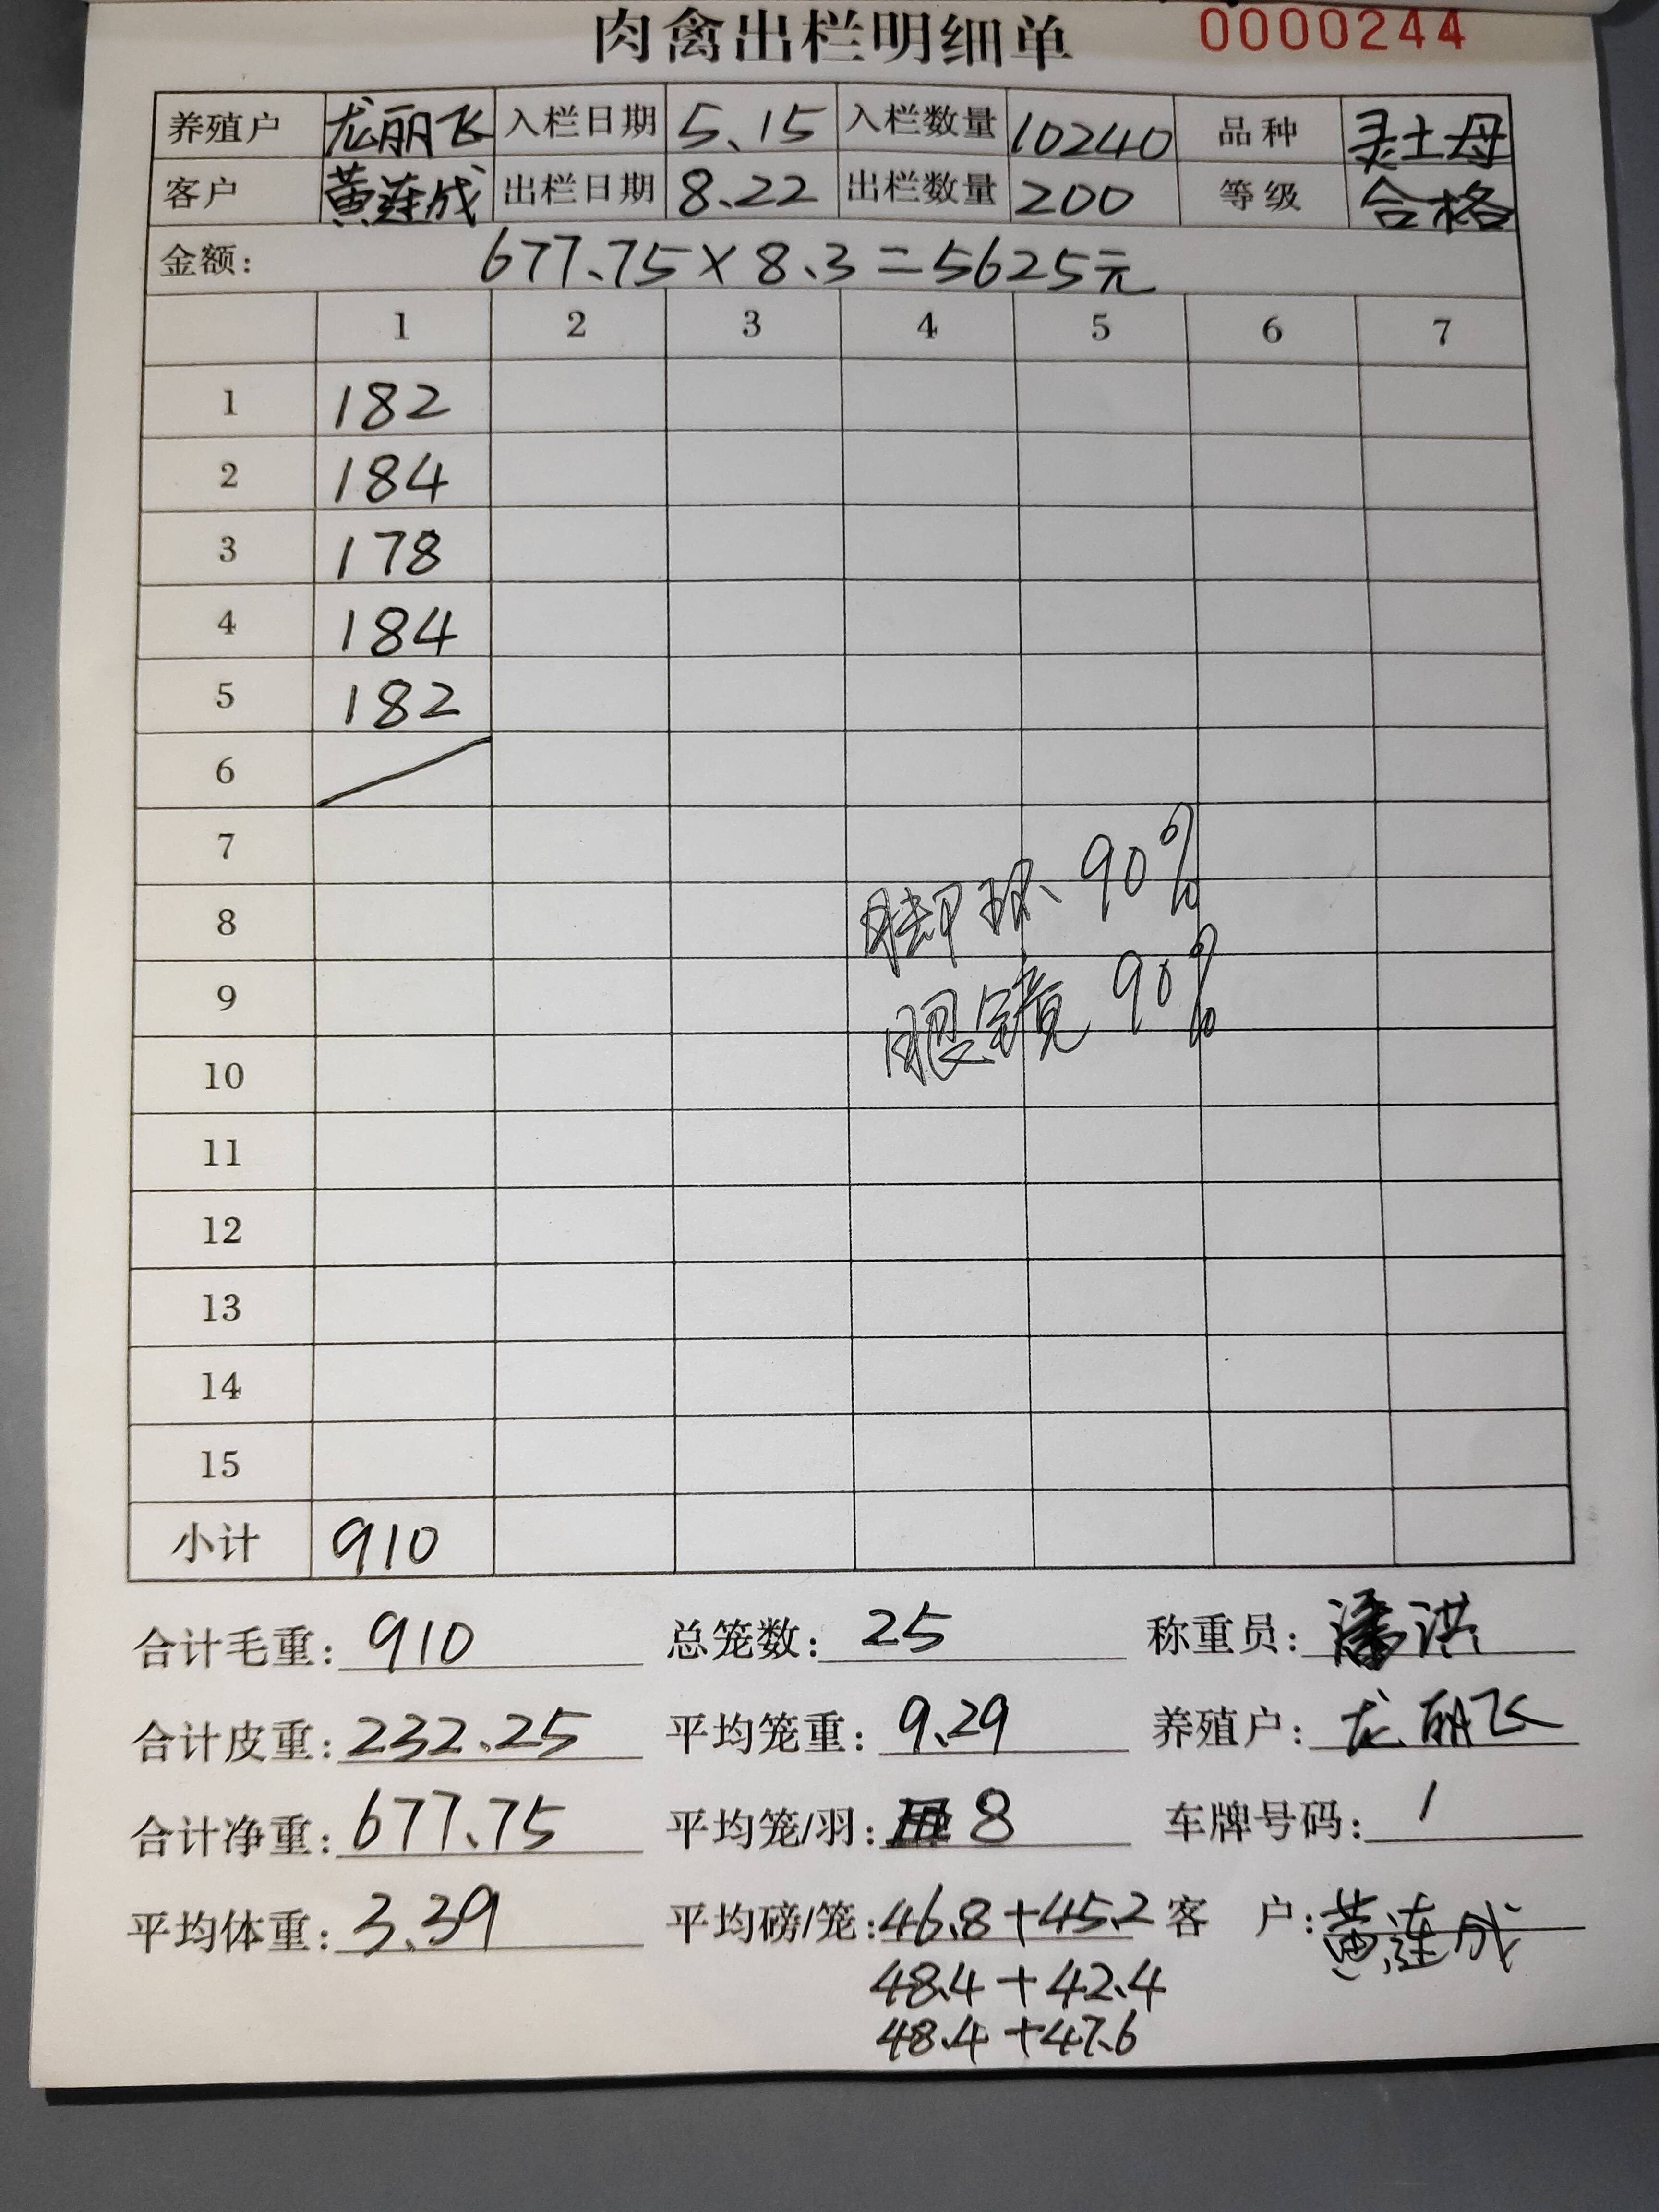 肉禽出栏明细单 0000244
养殖户 龙丽飞 入栏日期 5.15 入栏数量 10240 品种 灵土母
客户 黄莲成 出栏日期 8.22 出栏数量 200 等级 合格
金额: 677.75×8.3=5625元
1 2 3 4 5 6 7
1 182
2 184
3 178
4 184
5 182
6
7
8 脚环 90%
9 眼镜 90%
10
11
12
13
14
15
小计 910
合计毛重: 910 总笼数: 25 称重员: 潘洪
合计皮重: 232.25 平均笼重: 9.29 养殖户: 龙丽飞
合计净重: 677.75 平均笼/羽: 8 车牌号码: /
平均体重: 3.39 平均磅/笼: 46.8+45.2 客 户: 黄莲成
48.4+42.4
48.4+47.6